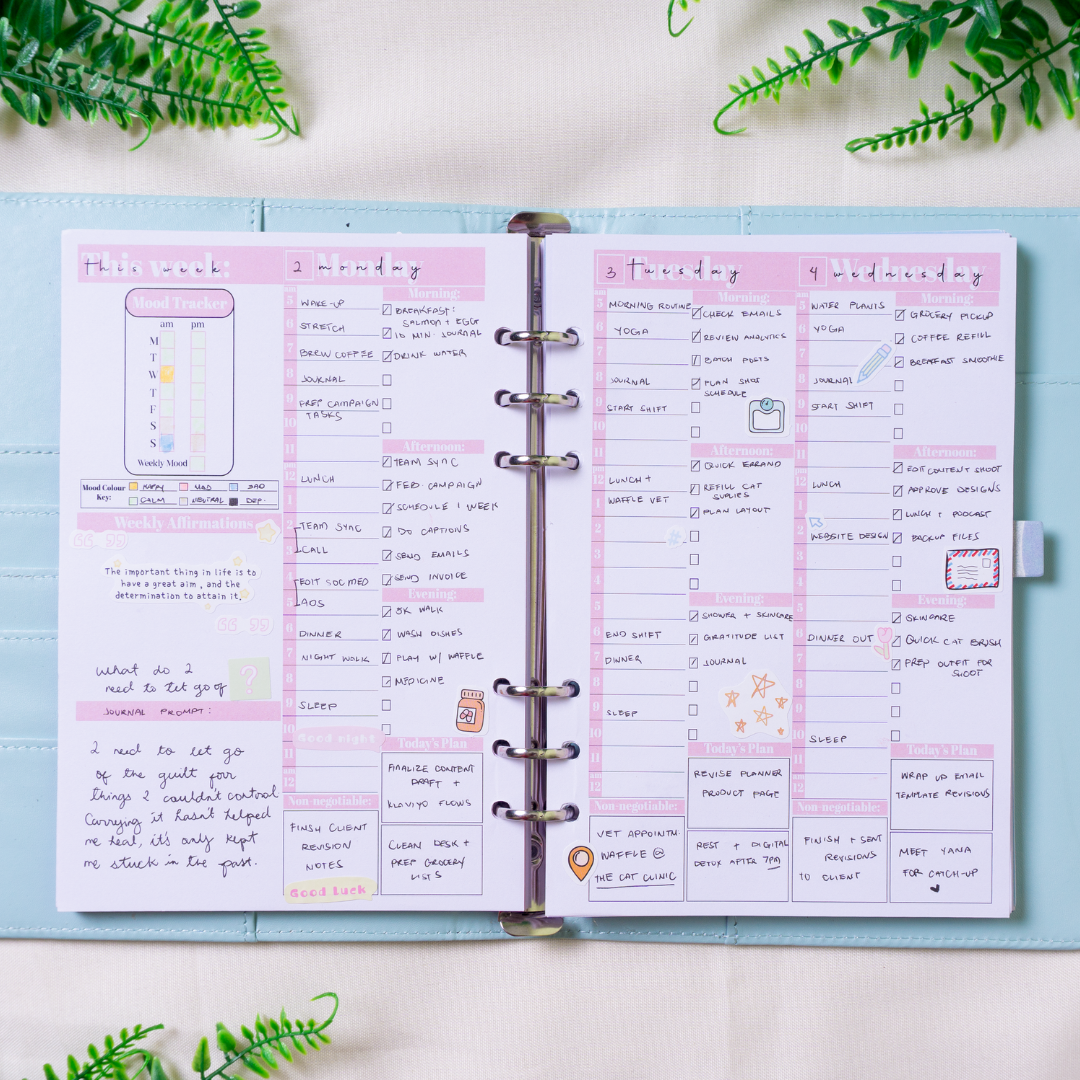 This week:
Mood Tracker
am pm
M
T
W
T
F
S
S
Weekly Mood
Mood Colour Key:
HAPPY MAD SAD
CALM NEUTRAL DEP.
Weekly Affirmations
The important thing in life is to
have a great aim , and the
determination to attain it.
what do I
need to let go of
?
JOURNAL PROMPT:
I need to let go
of the guilt for
things I couldn't control
Carrying it hasn't helped
me heal, it's only kept
me stuck in the past.
2 monday
5 WAKE-UP
6 STRETCH
7 BREW COFFEE
8 JOURNAL
9 PREP CAMPAIGN
TASKS
10
11
12 LUNCH
1
2 TEAM SYNC
3 CALL
4 EDIT SOC MED
5 ADS
6 DINNER
7 NIGHT WALK
8
9 SLEEP
10 Good night
11
12
Non-negotiable:
FINSH CLIENT
REVISION
NOTES
Good Luck
Morning:
BREAKFAST:
SALMON + EGG
10 MIN. JOURNAL
DRINK WATER
Afternoon:
TEAM SYNC
FEB. CAMPAIGN
SCHEDULE 1 WEEK
DO CAPTIONS
SEND EMAILS
SEND INVOICE
Evening:
5K WALK
WASH DISHES
PLAY W/ WAFFLE
MEDICINE
Today's Plan
FINALIZE CONTENT
DRAFT +
KLAVIYO FLOWS
CLEAN DESK +
PREP GROCERY
LISTS
3 Tuesday
5 MORNING ROUTINE
6 YOGA
7
8 JOURNAL
9 START SHIFT
10
11
12 LUNCH +
1 WAFFLE VET
2
3
4
5
6 END SHIFT
7 DINNER
8
9 SLEEP
10
11
12
Non-negotiable:
VET APPOINTM.
WAFFLE @
THE CAT CLINIC
Morning:
CHECK EMAILS
REVIEW ANALYTICS
BATCH POSTS
PLAN SHOT
SCHEDULE
Afternoon:
QUICK ERRAND
REFILL CAT
SUPLIES
PLAN LAYOUT
#
Evening:
SHOWER + SKINCARE
GRATITUDE LIST
JOURNAL
Today's Plan
REVISE PLANNER
PRODUCT PAGE
REST + DIGITAL
DETOX AFTER 7PM
4 Wednesday
5 WATER PLANTS
6 YOGA
7
8 JOURNAL
9 START SHIFT
10
11
12 LUNCH
1
2 WEBSITE DESIGN
3
4
5
6 DINNER OUT
7
8
9
10 SLEEP
11
12
Non-negotiable:
FINISH + SENT
REVISIONS
TO CLIENT
Morning:
GROCERY PICKUP
COFFEE REFILL
BREAKFAST SMOOTHIE
Afternoon:
EDIT CONTENT SHOOT
APPROVE DESIGNS
LUNCH + PODCAST
BACKUP FILES
Evening:
SKINCARE
QUICK CAT BRUSH
PREP OUTFIT FOR
SHOOT
Today's Plan
WRAP UP EMAIL
TEMPLATE REVISIONS
MEET YANA
FOR CATCH-UP